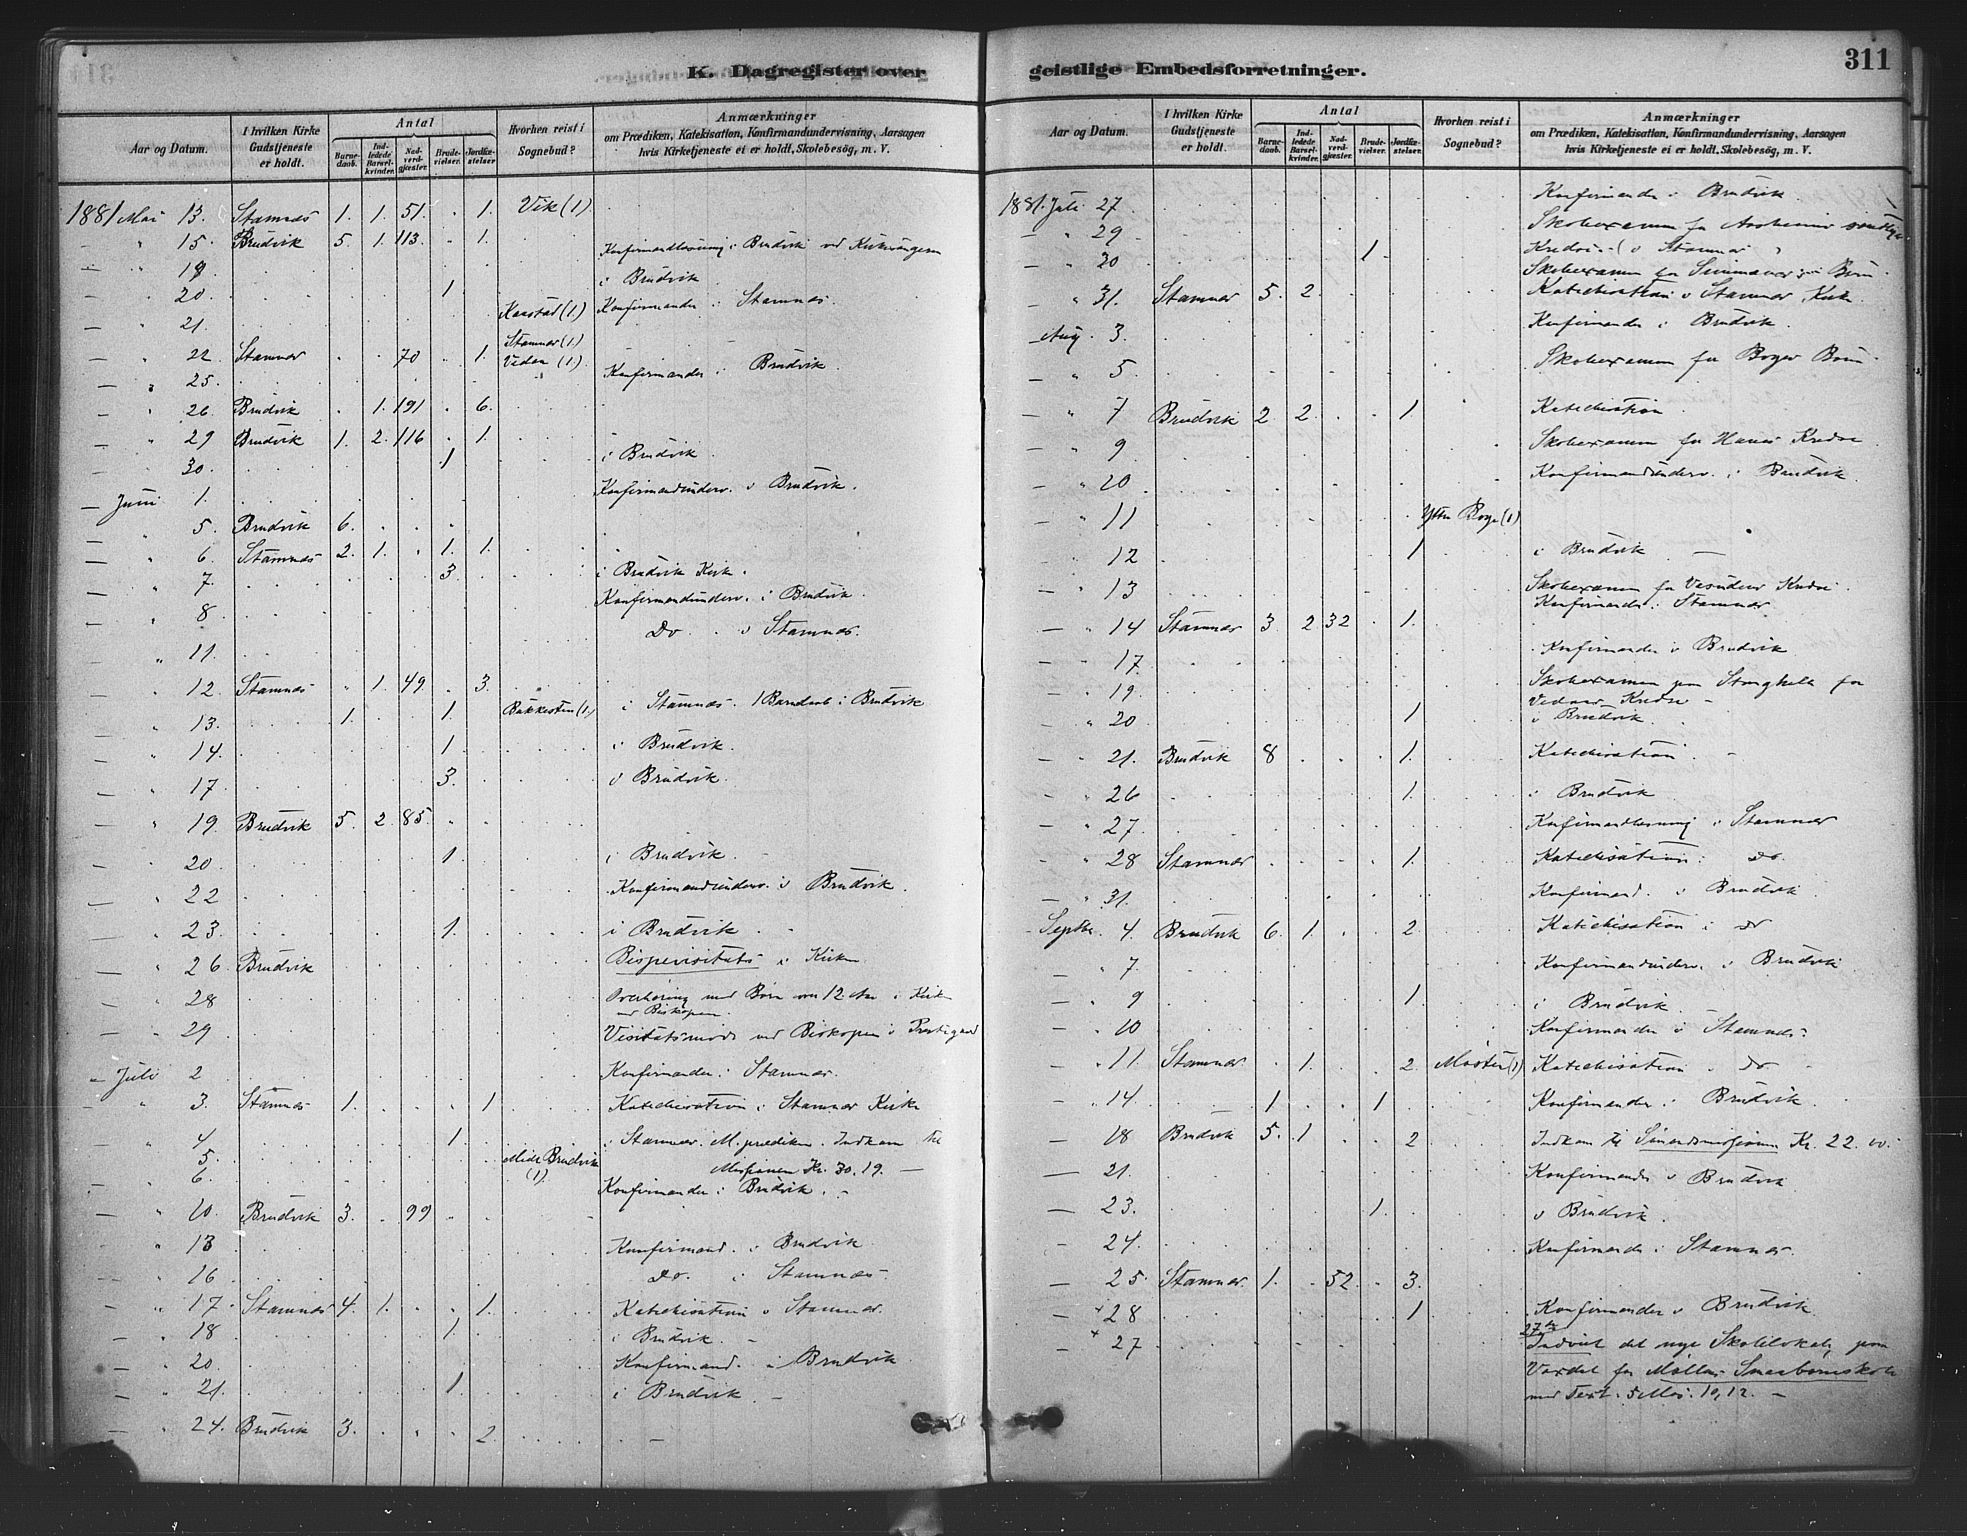 K. Dagregister over
Aar og Datum.
I hvilken Kirke Gudstjeneste er holdt.
Antal
Barnedaab.
Indledede Barselkvinder.
Nadverdgjester.
Brudevielser.
Jordfæstelser
Hvorhen reist i Sognebud?
Anmærkninger
om Prædiken, Katekisation, Konfirmandundervisning, Aarsagen
hvis Kirketjeneste ei er holdt, Skolebesög, m. V.
1881 Mai 13. Stamnæs 1. 1. 51. 1. Vik (1)
15. Brudvik 5. 1. 113. 1. Konfirmandlæsning i Brudvik
19
20. 1 i Brudvik
21. Kaastad (1) Konfirmander i Stamnæs.
22 Stamnæs 70 1. Stamnæs (1) Vedaa (1)
25. Konfirmander i Brudvik
26 Brudvik 1. 191 6.
29 Brudvik 1. 2. 116 1.
30. 1 i Brudvik
Juni 1. Konfirmandunderv. i Brudvik.
5. Brudvik 6.
6 Stamnæs 2. 1. 1. 1.
7. 3. i Brudvik Kirke.
8. Konfirmandunderv. i Brudvik.
11. Do. i Stamnæs.
12 Stamnæs 1. 49. 3.
13. 1. 1. (1.) i Stamnæs. 1 Barnedaab i Brudvik
14. 1. i Brudvik.
17. 3. i Brudvik.
19. Brudvik 5. 2. 85.
20. 1. i Brudvik.
22 Konfirmandunderv. i Brudvik.
23. 1. i Brudvik.
26 Brudvik Bispevisitats i Kirken
28 Overhøring med Børn over 12 Aar i Kirken
ved Biskopen.
29 Visitatsmøde ved Biskopen i Præstegaard
Juli 2 Konfirmander i Stamnæs.
3. Stamnæs 1. 1 Katechisation i Stamnæs Kirke
4 1. i Stamnæs M.prædiken. Indkom til
5. Midt Brudvik (1) Missionen Kr. 30.19.
6. Konfirmander i Brudvik.
10. Brudvik 3. 99
13 Konfirmand. i Brudvik
16 Do. i Stamnæs.
17 Stamnæs 4. 1. 1. Katechisation i Stamnæs.
18 1. i Brudvik.
20 Konfirmand. i Brudvik
21. 1. i Brudvik
24. Brudvik 3. 2.
geistlige Embedsforretninger.
311
Aar og Datum.
I hvilken Kirke Gudstjeneste er holdt.
Antal
Barnedaab.
Indledede Barselkvinder.
Nadverdgjester.
Brudevielser.
Jordfæstelser.
Hvorhen reist i Sognebud?
Anmærkninger
om Prædiken, Katekisation, Konfirmandundervisning, Aarsagen
hvis Kirketjeneste ei er holdt, Skolebesög, m. V.
1881. Juli 27 Konfirmander i Brudvik
29 Skolexamen for
30 1
Skolexamen for
31. Stamnæs 5. 2. Katechisation i Stamnæs Kirke
Aug. 3. Konfirmander i Brudvik.
5 Skolexamen for
7 Brudvik 2 2. 1. Katechisation
9 Skolexamen for Kreds
10 Konfirmandunderv. i Brudvik
11 Ytre Boge (1)
12 1 i Brudvik
13 Skolexamen for Kreds.
Konfirmander i Stamnæs.
14 Stamnæs 3 2 32 1.
17. Konfirmander i Brudvik
19. Skolexamen paa for
Vedaas Kreds
20 1 i Brudvik
21. Brudvik 8 1. Katechisation
26 1. i Brudvik
27. Konfirmandlæsning i Stamnæs
28 Stamnæs 1. Katechisation Do
31. Konfirmand. i Brudvik
Septbr. 4. Brudvik 6. 1. 2 Katechisation i do
7. Konfirmandunderv. i Brudvik
9 1. i Brudvik.
10 Konfirmander i Stamnæs
11. Stamnæs 1. 2. (1) Katechisation i do
14. 1 1 Konfirmander i Brudvik.
18 Brudvik 5. 1. 2 Indkom til Sømandsmissionen Kr. 22.00.
21. Konfirmander i Brudvik
23. 1. i Brudvik
24. Konfirmander i Stamnæs.
25. Stamnæs 1. 52. 3.
+ 28 1 Konfirmander i Brudvik
+ 27 27de Indviet det nye Skolelokale paa
Vaxdal for Møllens Smaabørnskole
med Text. 5 Mos. 10,12.